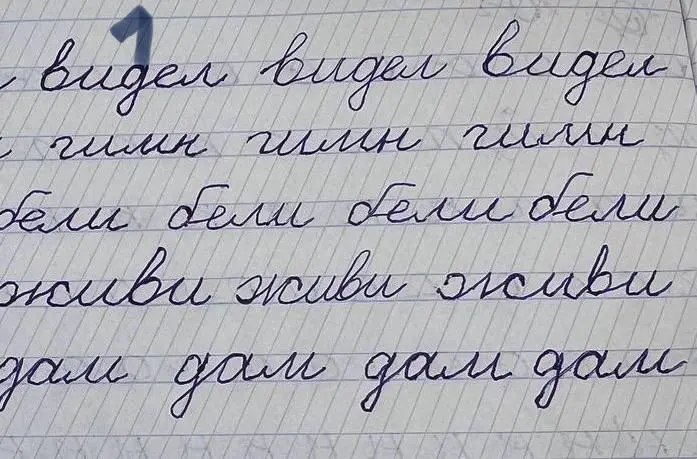 1
видел видел видел
гимн гимн гимн
бели бели бели бели
живи живи живи
дам дам дам дам